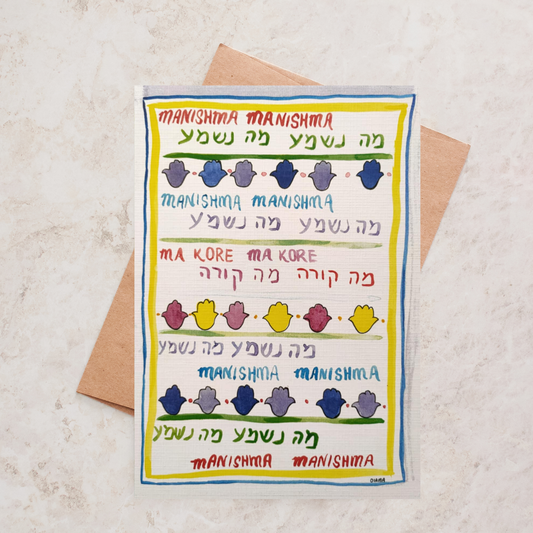 MANISHMA MANISHMA
מה נשמע מה נשמע
MANISHMA MANISHMA
מה נשמע מה נשמע
MA KORE MA KORE
מה קורה מה קורה
מה נשמע מה נשמע
MANISHMA MANISHMA
מה נשמע מה נשמע
MANISHMA MANISHMA